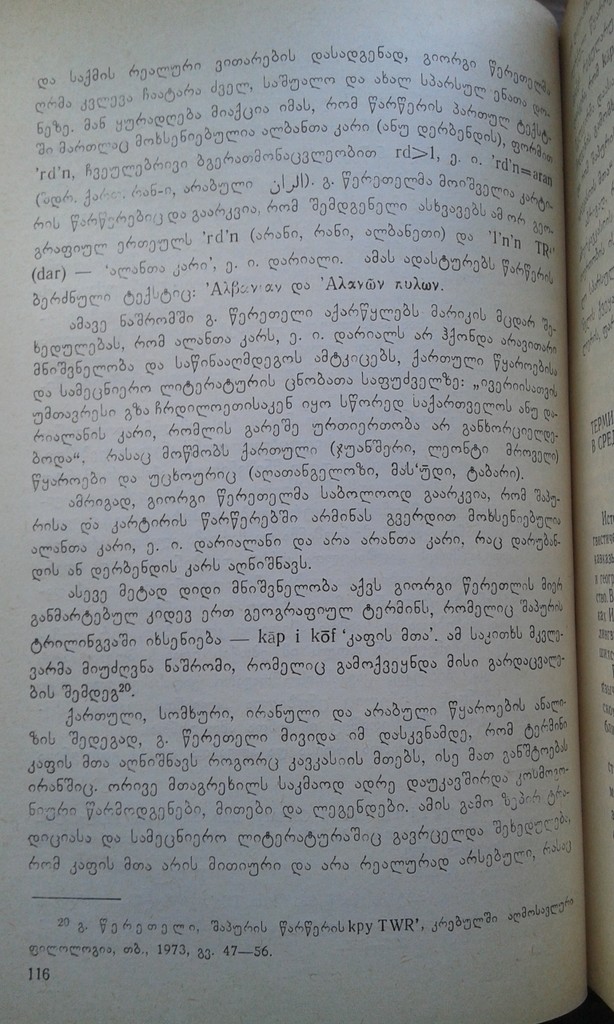 და საქმის რეალური ვითარების დასადგენად, გიორგი წერეთელმა
ღრმა კვლევა ჩაატარა ძველ, საშუალო და ახალ სპარსულ ენათა დო-
ნეზე. მან ყურადღება მიაქცია იმას, რომ წარწერის პართულ ტექსტ-
ში მართლაც მოხსენიებულია ალბანთა კარი (ანუ დერბენდის), ფორმით
'rd'n, ჩვეულებრივი ბგერათმონაცვლეობით rd>l, ე. ი. 'rd'n=aran
(ადრ. ქართ. რან-ი, არაბული الران). გ. წერეთელმა მოიშველია კარტი-
რის წარწერებიც და გაარკვია, რომ შემდგენელი ასხვავებს ამ ორ გეო-
გრაფიულ ერთეულს 'rd'n (არანი, რანი, ალბანეთი) და 'l'n'n TR'
(dar) — 'ალანთა კარი', ე. ი. დარიალი. ამას ადასტურებს წარწერის
ბერძნული ტექსტიც: 'Αλβανίαν და 'Αλανῶν πυλων.
ამავე ნაშრომში გ. წერეთელი აქარწყლებს მარიკის მცდარ შე-
ხედულებას, რომ ალანთა კარს, ე. ი. დარიალს არ ჰქონდა არავითარი
მნიშვნელობა და საწინააღმდეგოს ამტკიცებს, ქართული წყაროებისა
და სამეცნიერო ლიტერატურის ცნობათა საფუძველზე: „ივერიისათვის
უმთავრესი გზა ჩრდილოეთისაკენ იყო სწორედ საქართველოს ანუ და-
რიალანის კარი, რომლის გარეშე ურთიერთობა არ განხორციელდე-
ბოდა“, რასაც მოწმობს ქართული (ჯუანშერი, ლეონტი მროველი)
წყაროები და უცხოურიც (აღათანგელოზი, მას'ūდი, ტაბარი).
ამრიგად, გიორგი წერეთელმა საბოლოოდ გაარკვია, რომ შაპუ-
რისა და კარტირის წარწერებში არმინას გვერდით მოხსენიებულია
ალანთა კარი, ე. ი. დარიალანი და არა არანთა კარი, რაც დარუბან-
დის ან დერბენდის კარს აღნიშნავს.
ასევე მეტად დიდი მნიშვნელობა აქვს გიორგი წერეთლის მიერ
განმარტებულ კიდევ ერთ გეოგრაფიულ ტერმინს, რომელიც შაპურის
ტრილინგვაში იხსენიება — kāp i kōf 'კაფის მთა'. ამ საკითხს მკვლე-
ვარმა მიუძღვნა ნაშრომი, რომელიც გამოქვეყნდა მისი გარდაცვალე-
ბის შემდეგ²⁰.
ქართული, სომხური, ირანული და არაბული წყაროების ანალი-
ზის შედეგად, გ. წერეთელი მივიდა იმ დასკვნამდე, რომ ტერმინი
კაფის მთა აღნიშნავს როგორც კავკასიის მთებს, ისე მათ განშტოებას
ირანშიც. ორივე მთაგრეხილს საკმაოდ ადრე დაუკავშირდა კოსმოგო-
ნიური წარმოდგენები, მითები და ლეგენდები. ამის გამო ზეპირ ტრა-
დიციასა და სამეცნიერო ლიტერატურაშიც გავრცელდა შეხედულება,
რომ კაფის მთა არის მითიური და არა რეალურად არსებული, რასაც
²⁰ გ. წერეთელი, შაპურის წარწერის kpy TWR', კრებულში აღმოსავლური
ფილოლოგია, თბ., 1973, გვ. 47—56.
116